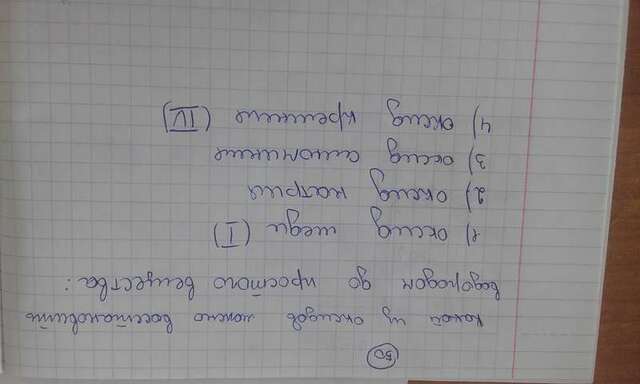 50
Какой из оксидов можно восстановить
водородом до простого вещества:
1) оксид меди (I)
2) оксид натрия
3) оксид алюминия
4) оксид кремния (IV)